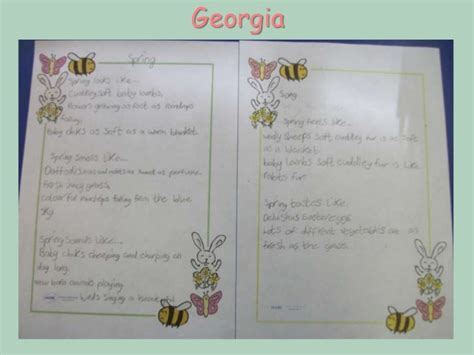 Georgia
Spring
Spring looks like...
cuddley soft baby lambs,
flowers growing as fast as raindrops
falling.
Baby chiks as soft as a warm blanket.
Spring smells like...
Daffodils and as sweet as perfume.
fresh grass.
colourful raindrops falling from the blue
sky.
Spring sounds like...
Baby chiks cheeping and chirping all
day long.
new born animals playing.
birds singing a
Spring
Spring feels like...
wooly sheeps soft cuddley fur is as soft
as a blanket.
baby lambs soft cuddley fur is like
rabits fur.
Spring tastes like...
Delishus Eastereggs
Lots of different vegetables are as
fresh as the grass.